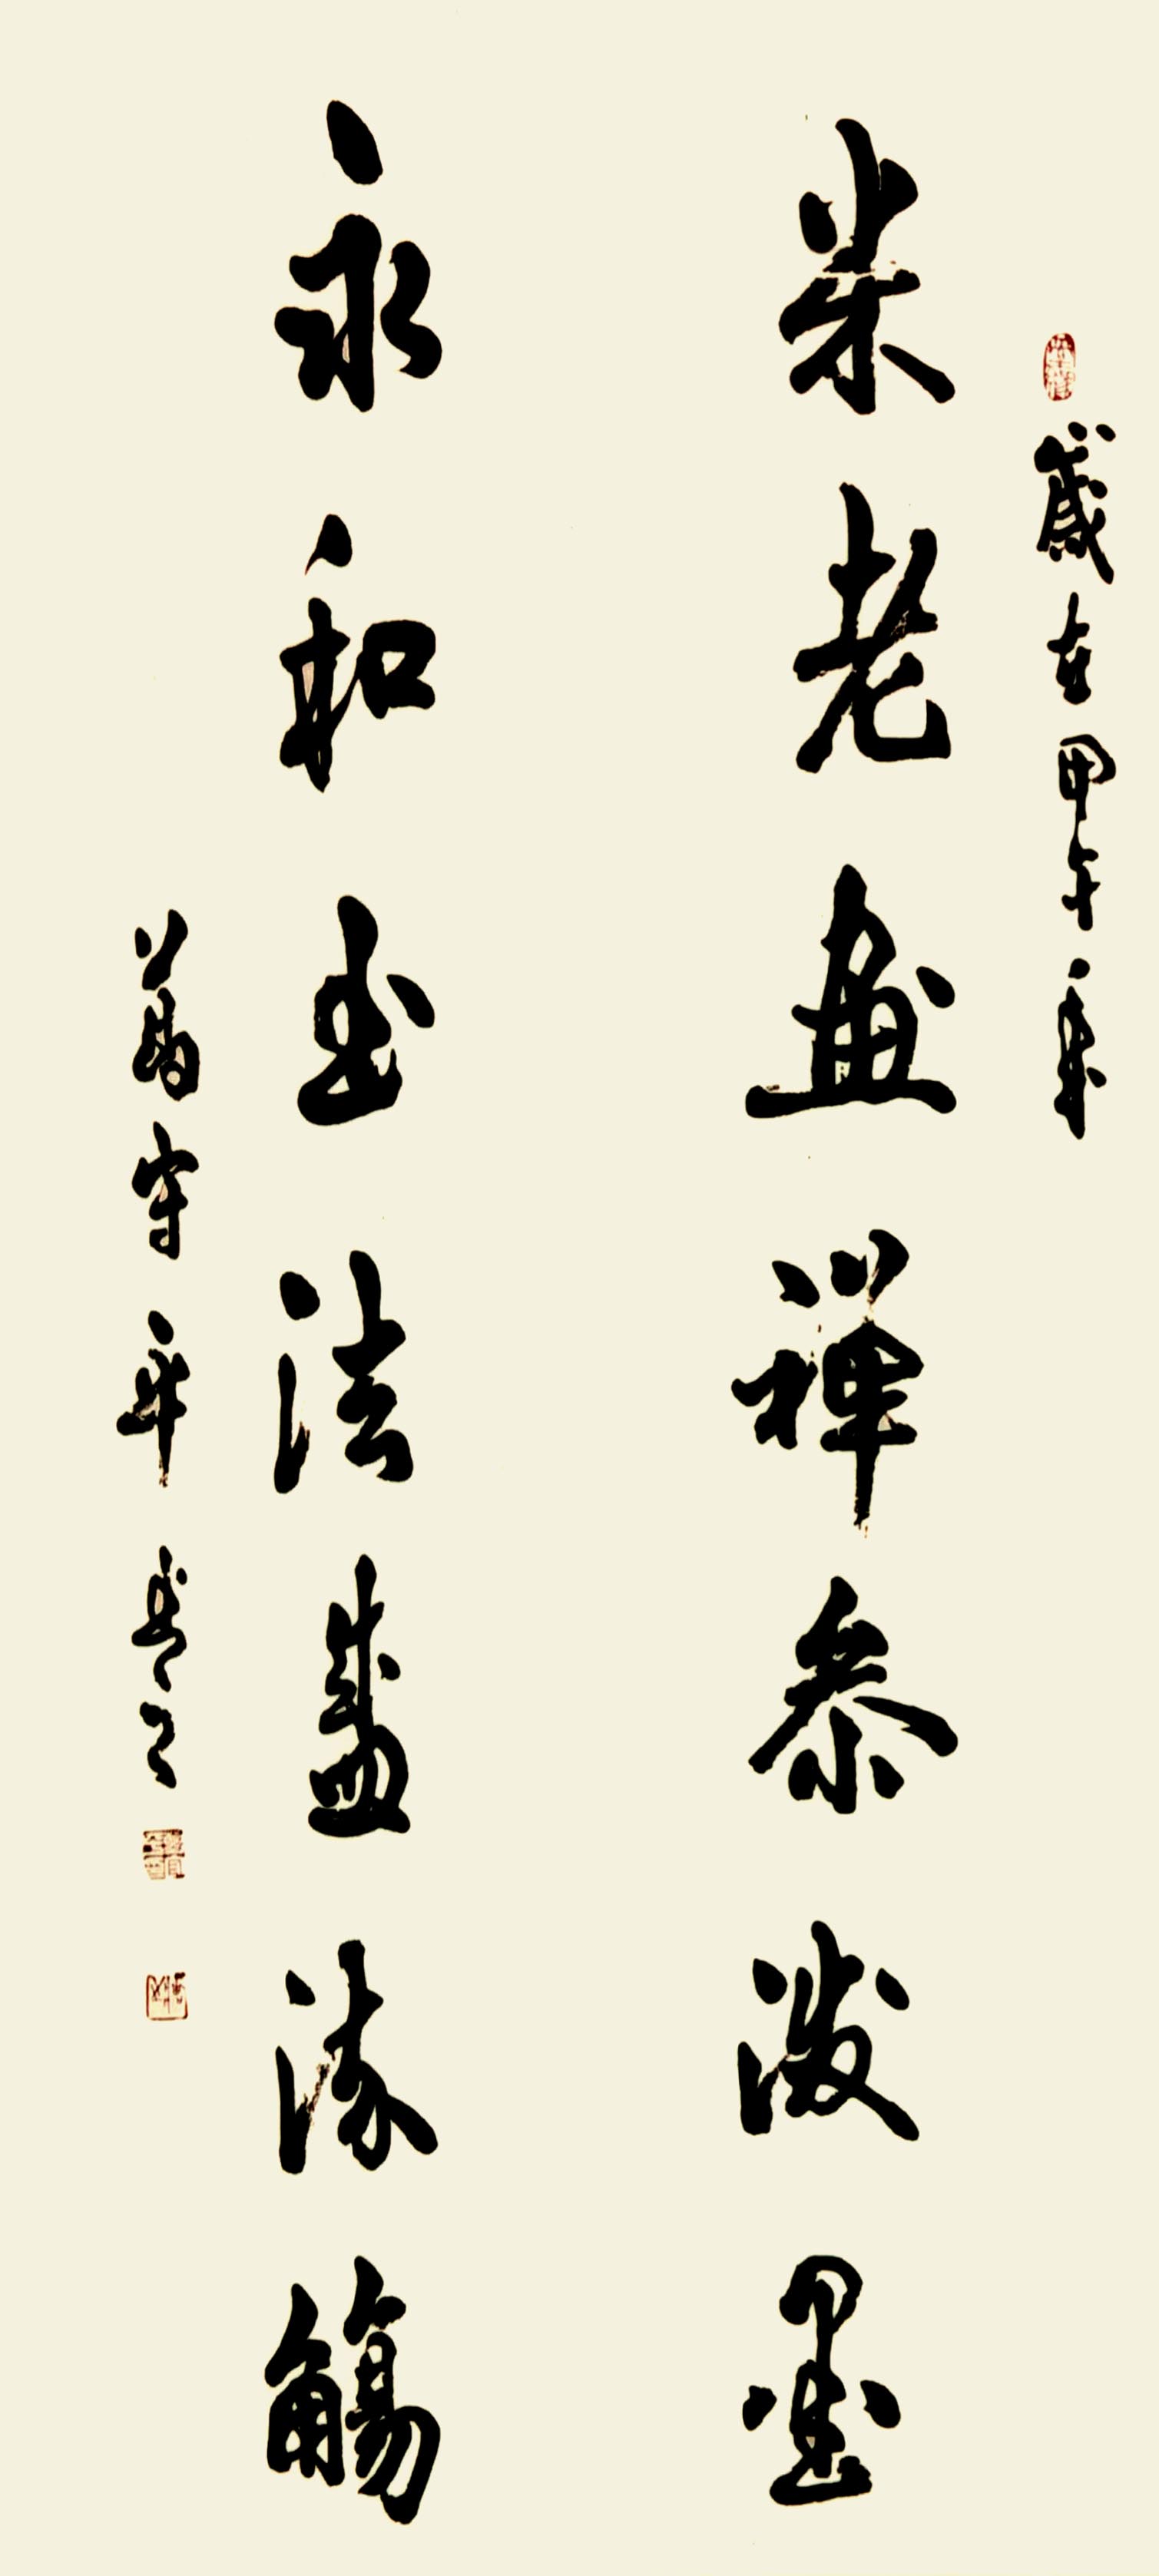 歲在甲午年
米老畫禪參潑墨
永和書法盛流觴
萬守平書之